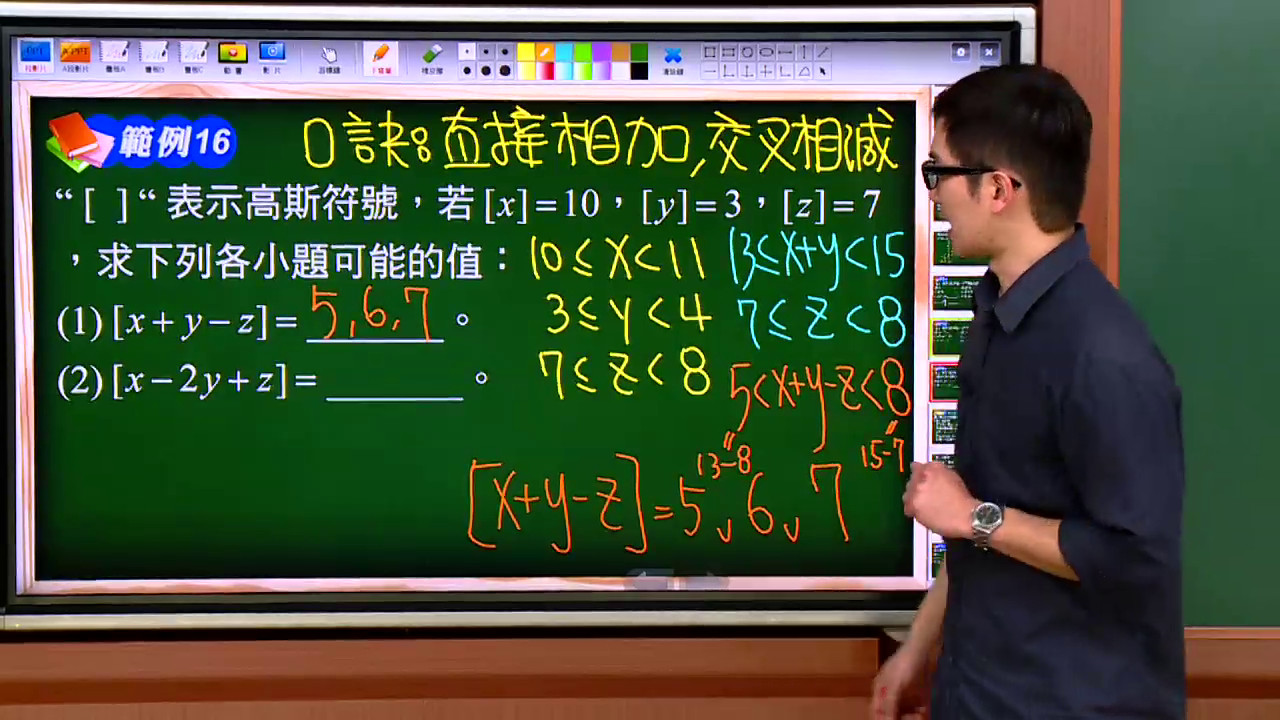 範例16
口訣:直接相加,交叉相減
“[ ]“表示高斯符號,若[x]=10,[y]=3,[z]=7
,求下列各小題可能的值:
(1)[x+y−z]= 5,6,7 。
(2)[x−2y+z]= ______ 。
10≤x<11
3≤y<4
7≤z<8
13≤x+y<15
7≤z<8
5<x+y-z<8
"
13-8
"
15-7
[x+y-z]=5,6,7